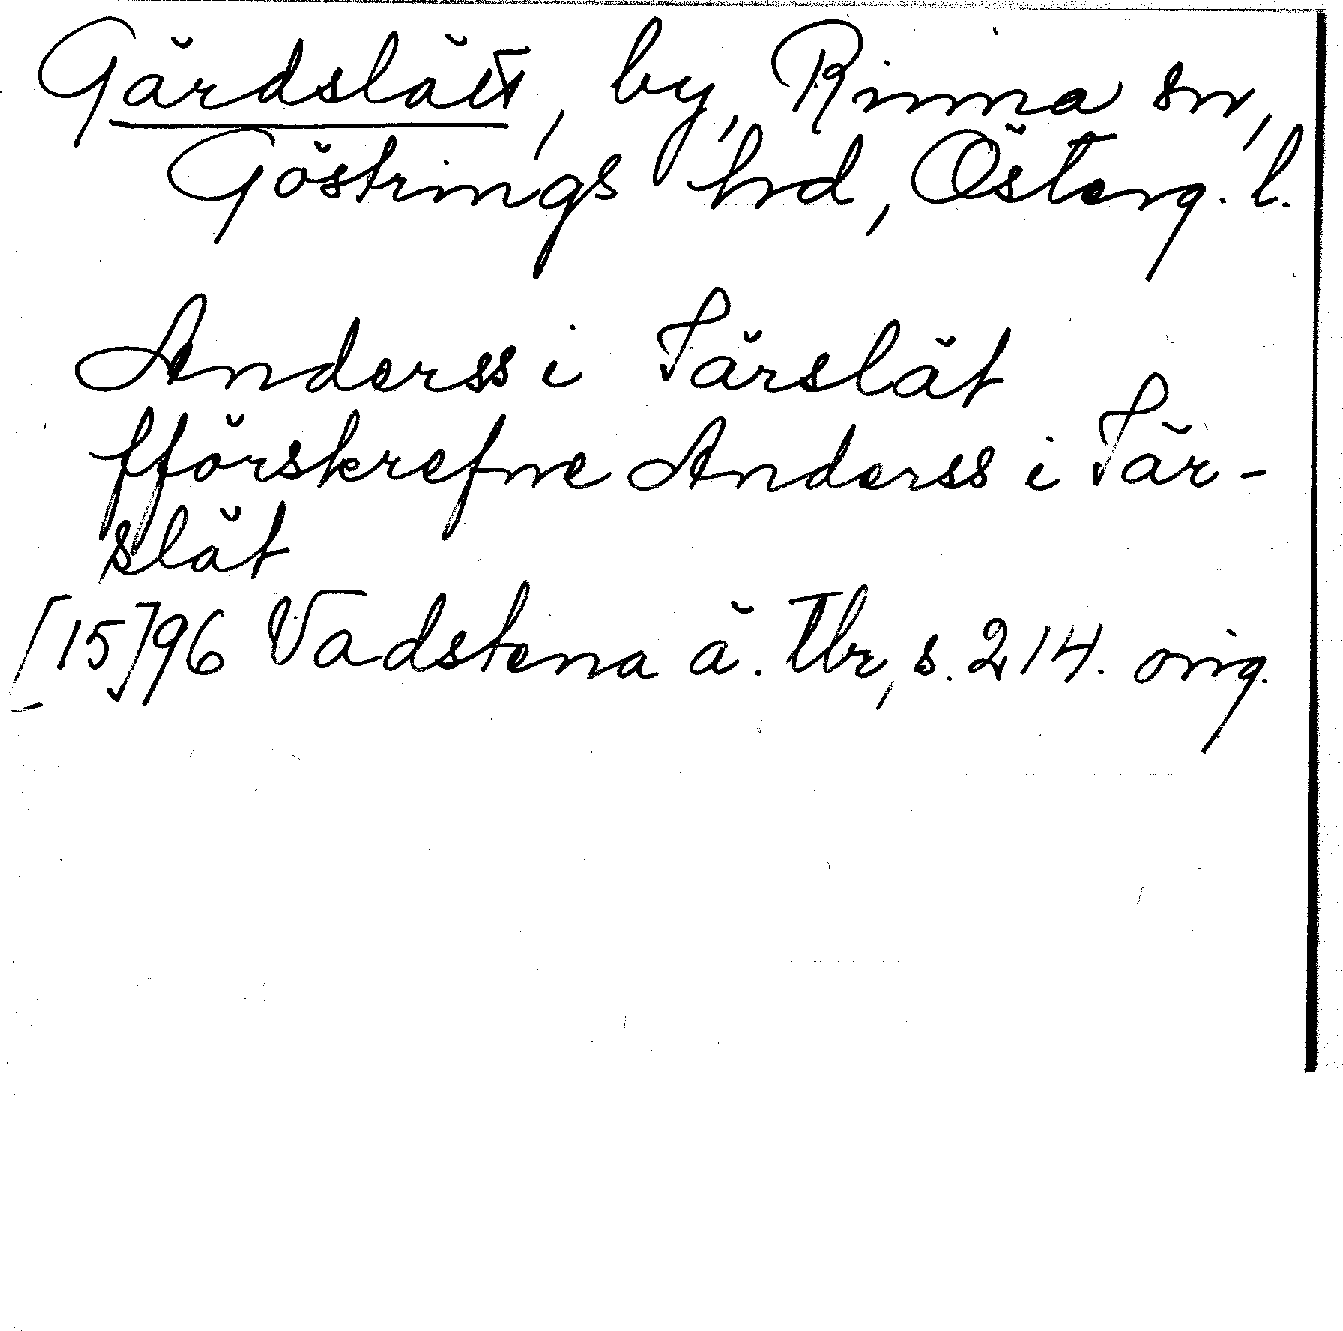 Gärdslätt, by, Rinna sn,
Göstrings hrd, Österg. l.
Anderss i Järslät
fförskrefne Anderss i Jär-
slät
[15]96 Vadstena ä. Tbr, s. 214. orig.